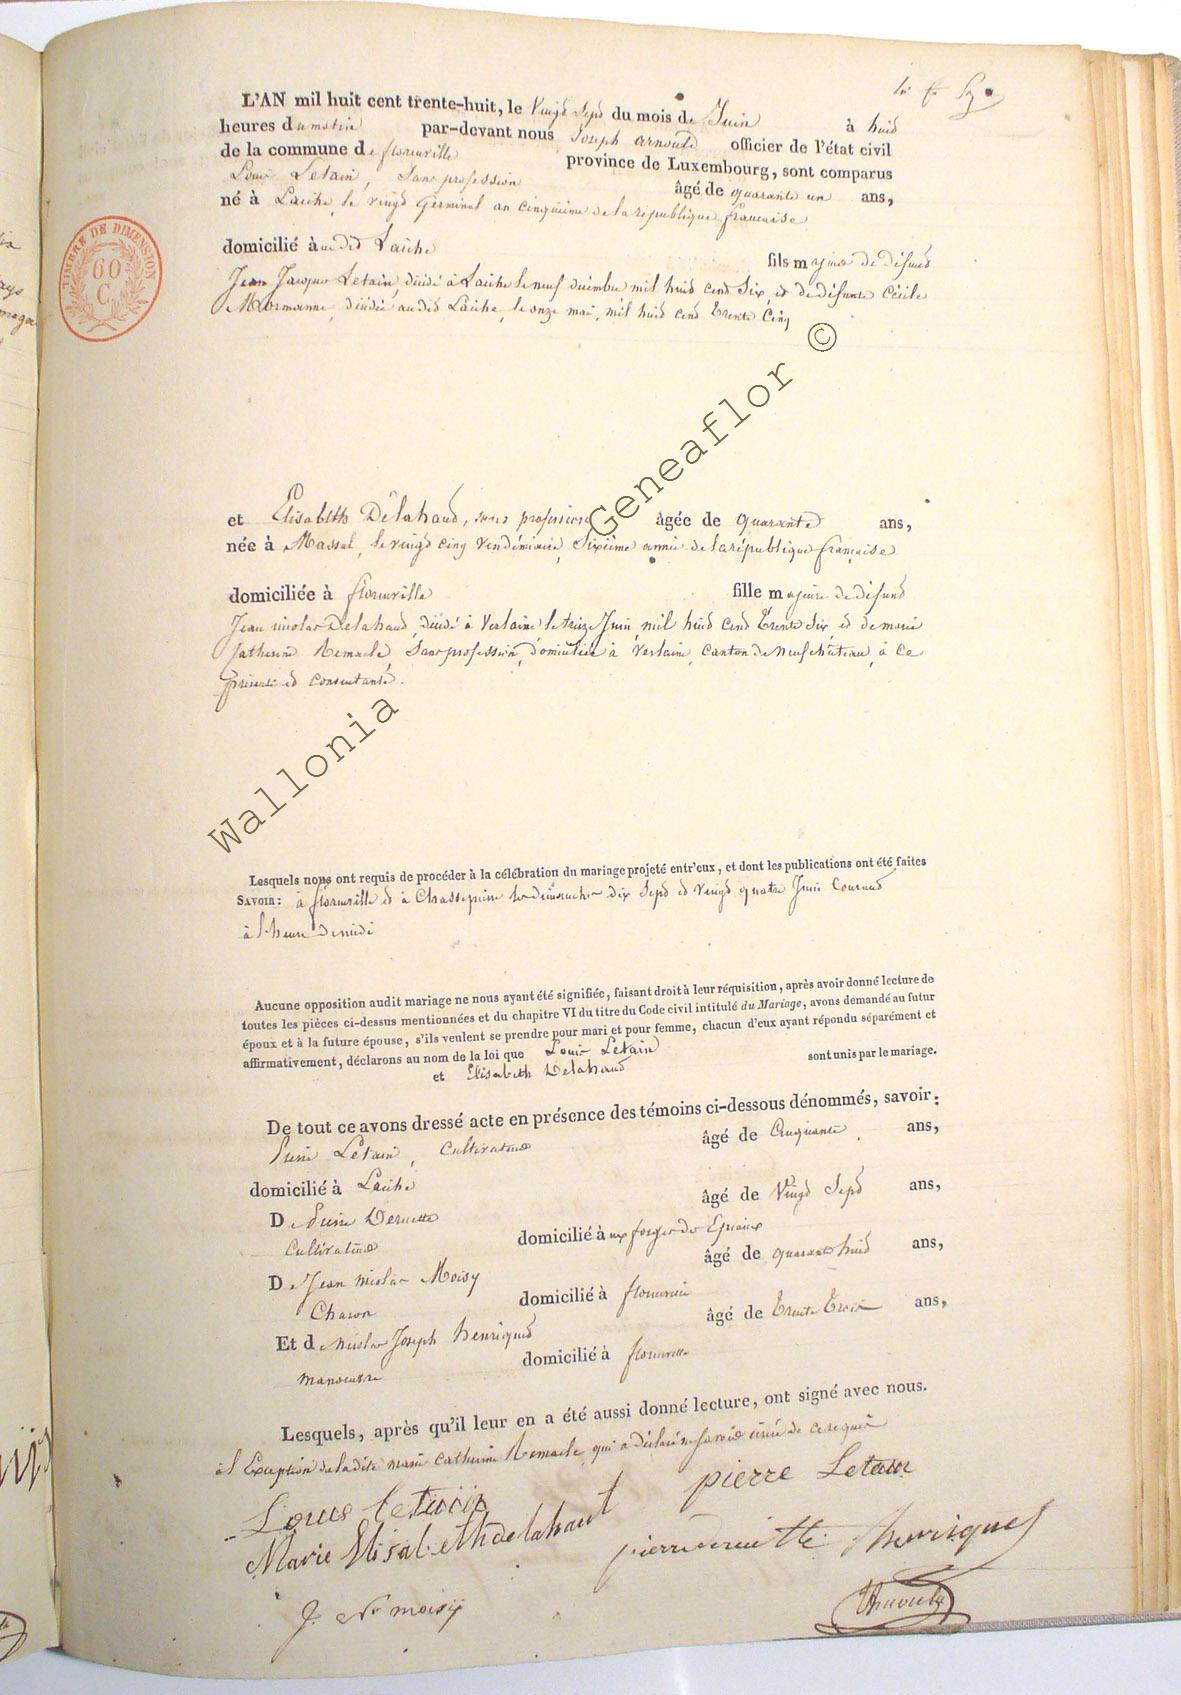 L'AN mil huit cent trente-huit, le Vingt Sept du mois de Juin à huit
heures du matin par-devant nous Joseph arnould officier de l'état civil
de la commune de florenville province de Luxembourg, sont comparus
Louis Letain, Sans profession âgé de quarante un ans,
né à Laiche, le vingt Germinal an cinquième de la république française
domicilié à au dit Laiche fils majeur de défunt
Jean Jacques Letain, décédé à Laiche le neuf décembre mil huit cent Six, et de défunte Cécile
décédée au dit Laiche, le onze mai, mil huit cent trente Cinq
TIMBRE DE DIMENSION
60
C.
et Elisabeth Delahaut, sans profession âgée de quarante ans,
née à Massul, le vingt cinq vendémiaire, Sixième année de la république française
domiciliée à florenville fille majeure de défunt
Jean nicolas Delahaut, décédé à Verlaine le treize Juin, mil huit cent trente Six, et de marie
Catherine Remacle, Sans profession, domiciliée à Verlaine, canton de Neufchateau, à ce
présente et consentante.
Lesquels nous ont requis de procéder à la célébration du mariage projeté entr'eux, et dont les publications ont été faites
SAVOIR: à florenville et à Chassepierre les dimanches dix Sept et vingt quatre Juin Courant
à l'heure de midi
Aucune opposition audit mariage ne nous ayant été signifiée, faisant droit à leur réquisition, après avoir donné lecture de
toutes les pièces ci-dessus mentionnées et du chapitre VI du titre du Code civil intitulé du Mariage, avons demandé au futur
époux et à la future épouse, s'ils veulent se prendre pour mari et pour femme, chacun d'eux ayant répondu séparément et
affirmativement, déclarons au nom de la loi que Louis Letain
et Elisabeth Delahaut sont unis par le mariage.
De tout ce avons dressé acte en présence des témoins ci-dessous dénommés, savoir:
Pierre Letain, Cultivateur âgé de Cinquante ans,
domicilié à Laiche
De Pierre Deruette âgé de Vingt Sept ans,
Cultivateur domicilié aux forges des Epioux
De Jean nicolas Moisy âgé de quarante huit ans,
Charon domicilié à florenville
Et de nicolas Joseph henriquet âgé de Trente Trois ans,
manoeuvre domicilié à florenville
Lesquels, après qu'il leur en a été aussi donné lecture, ont signé avec nous.
à l'Exception de la dite marie Catherine Remacle, qui a déclaré ne savoir écrire de ce requis
Louis letain pierre Letain
Marie Elisabeth delahaut pierre deruette henriquet
J. N. moisÿ Arnould
Wallonia Geneaflor ©